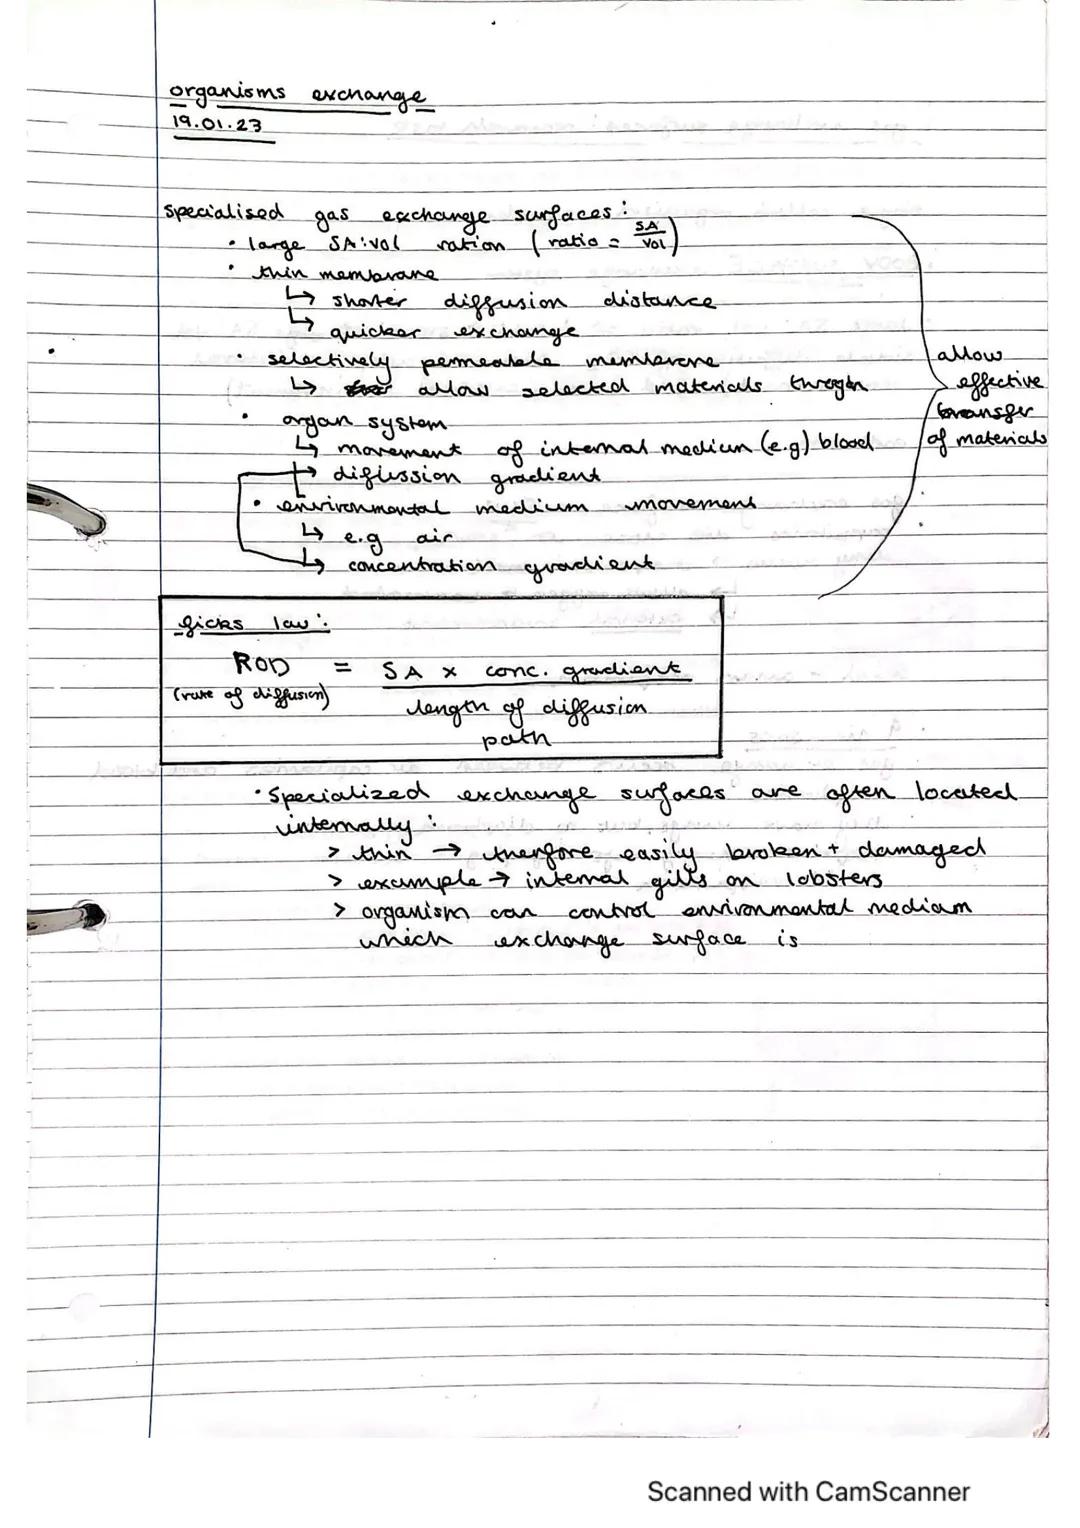 organisms exchange
19.01.23
specialised gas exchange surfaces:
• large SA:vol ration (ratio = SA/Vol)
• thin membrane
↳ shorter diffusion distance
↳ quicker exchange
• selectively permeable membrane
↳ allow selected materials through
• organ system
↳ movement of internal medium (e.g) blood
↳ difussion gradient
• environmental medium movement
↳ e.g air
↳ concentration gradient
allow
effective
transfer
of materials
ficks law:
ROD = SA x conc. gradient
(rate of diffusion)
length of diffusion
path
• Specialized exchange surfaces are often located
internally:
> thin → therfore easily broken + damaged
> example → internal gills on lobsters
> organism can control environmental medium
which exchange surface is
Scanned with CamScanner